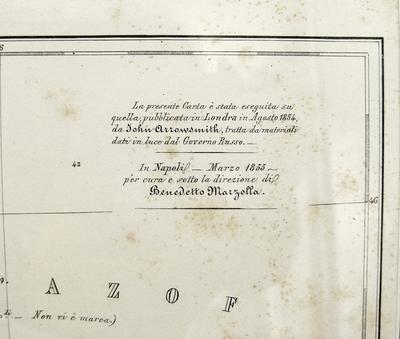 La presente Carta è stata eseguita su
quella pubblicata in Londra in Agosto 1854,
da John Arrowsmith, tratta da materiali
dati in luce dal Governo Russo.—
42
In Napoli — Marzo 1855 —
per cura e sotto la direzione di
Benedetto Marzolla.
46
AZOF
Non vi è marea.)